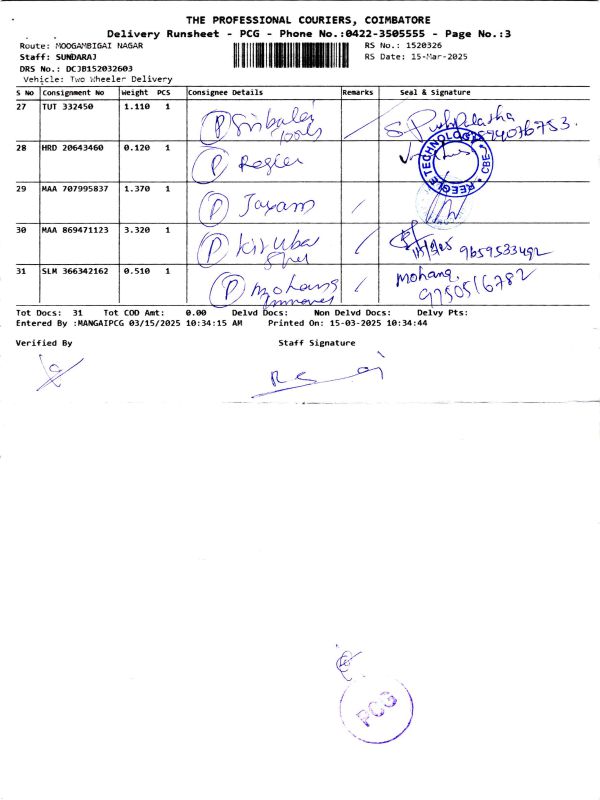 THE PROFESSIONAL COURIERS, COIMBATORE
Delivery Runsheet - PCG - Phone No.:0422-3505555 - Page No.:3
Route: MOOGAMBIGAI NAGAR RS No.: 1520326
Staff: SUNDARAJ RS Date: 15-Mar-2025
DRS No.: DCJB152032603
Vehicle: Two Wheeler Delivery
S No Consignment No Weight PCS Consignee Details Remarks Seal & Signature
27 TUT 332450 1.110 1 P
28 HRD 20643460 0.120 1 P
REEGLE TECHNOLOGY CBE
29 MAA 707995837 1.370 1 P Jayam
30 MAA 869471123 3.320 1 P Kiruba 9659533492
31 SLM 366342162 0.510 1 P Mohana Mohana, 9750516782
Tot Docs: 31 Tot COD Amt: 0.00 Delvd Docs: Non Delvd Docs: Delvy Pts:
Entered By :MANGAIPCG 03/15/2025 10:34:15 AM Printed On: 15-03-2025 10:34:44
Verified By Staff Signature
PCG